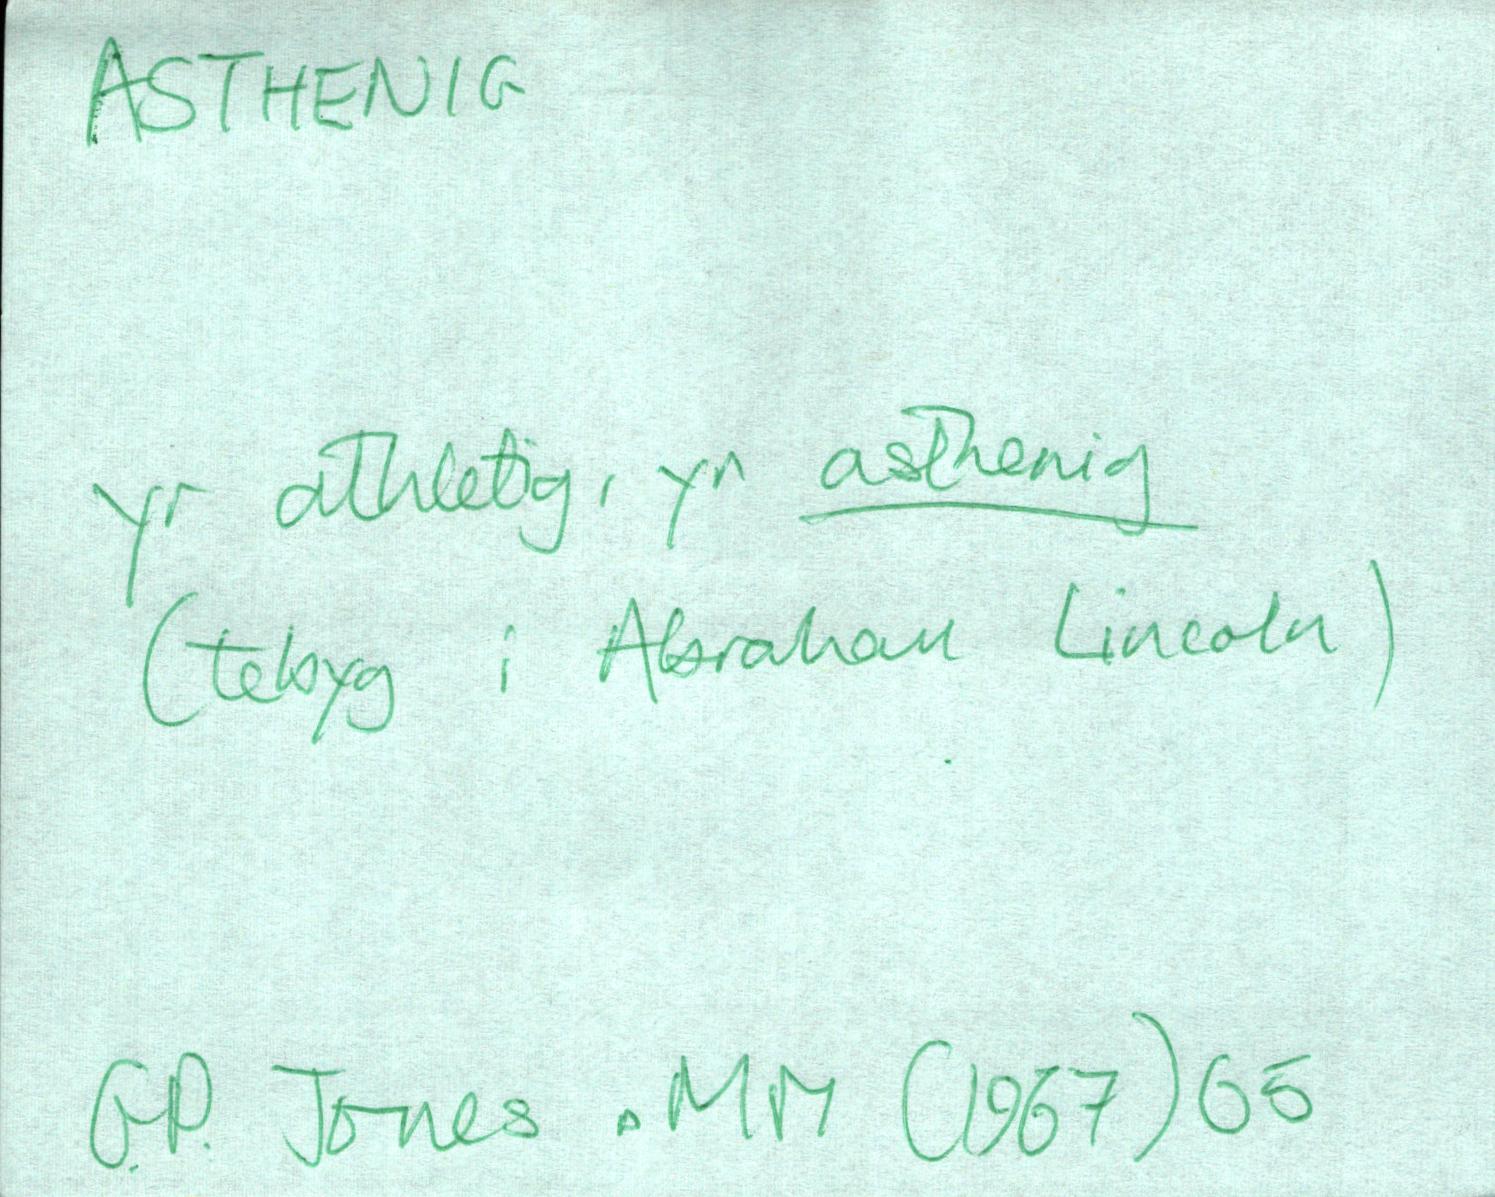 ASTHENIG
yr athletig, yr asthenig
(tebyg i Abraham Lincoln)
G.P. Jones. MM (1967) 65